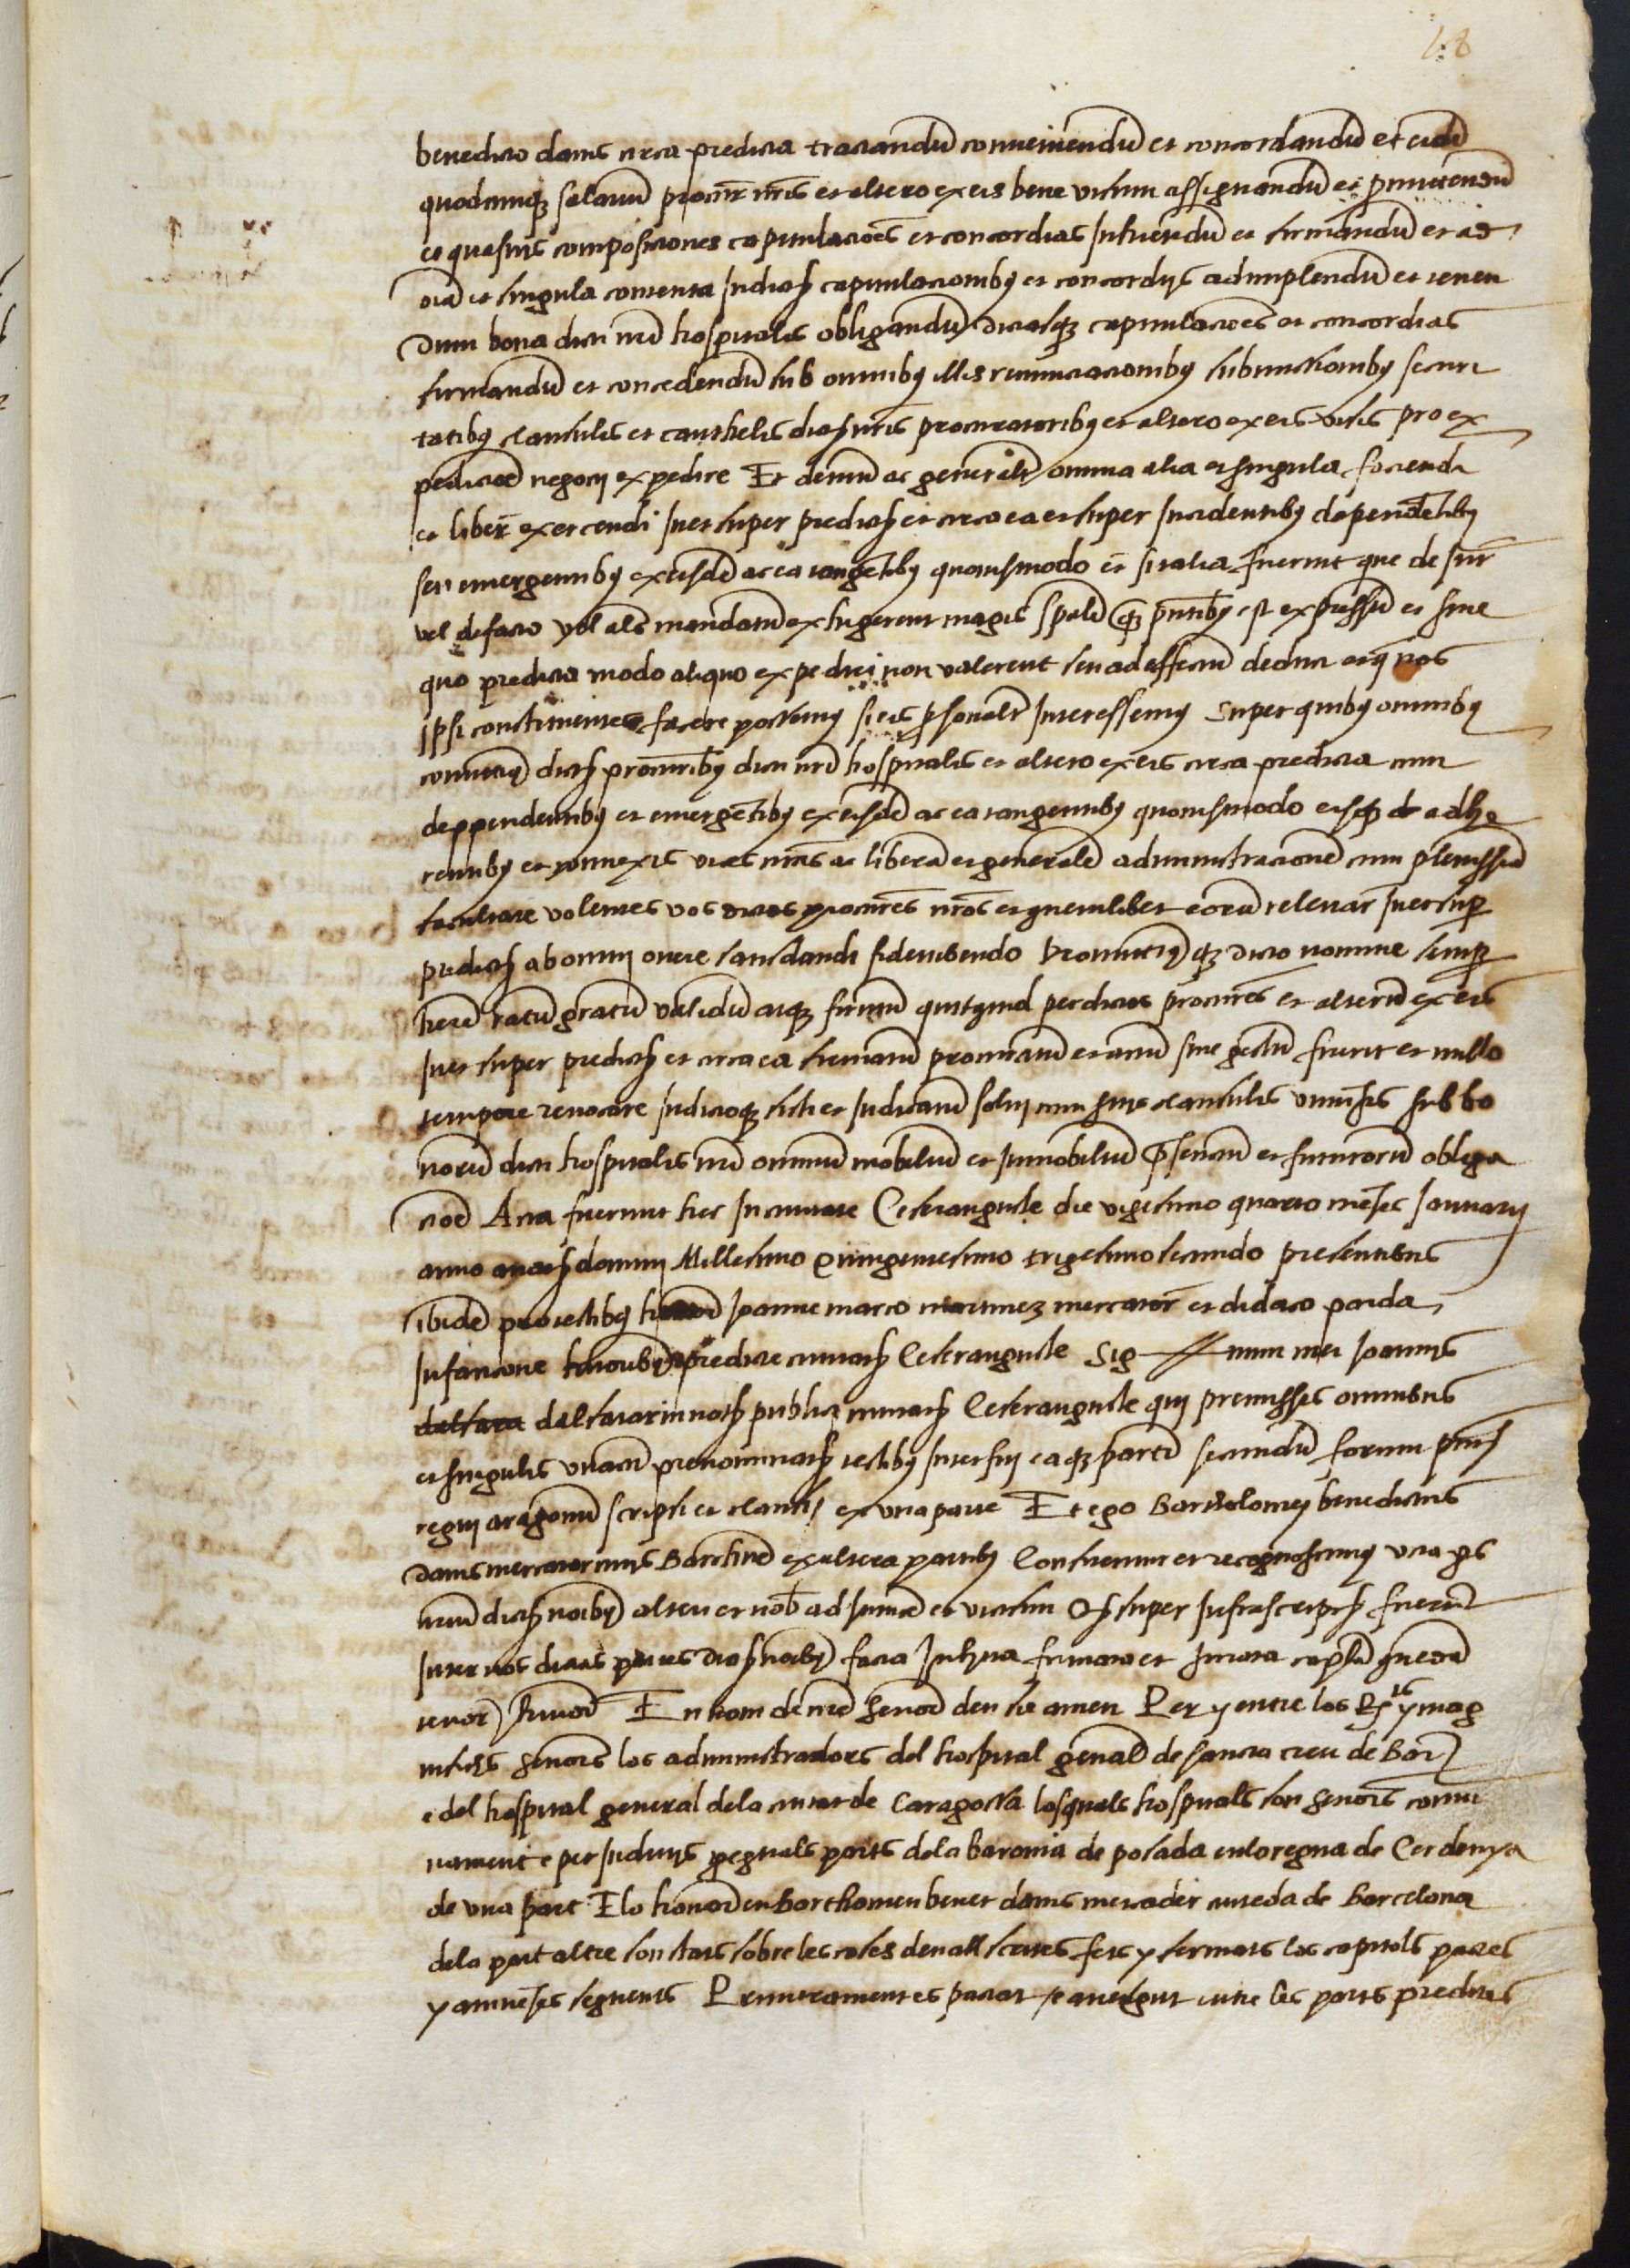 48
benedicto dams circa predicta tractandū conveniendū et concordandū et eidē
quodcunqʒ salariū procur̄ nr̄is et altero ex eis bene visum assignandū et promittendū
et quasuis composiciones capitulacioēs et concordias Ineundū et firmandū et ad
oīa et singula contenta In dictis capitulacionibꝰ et concordijs adimplendū et tenen
dum bona dicti nr̄i hospitalis obligandū dictasqʒ capitulacioēs et concordias
firmandū et concedendū sub omnibꝰ illis renunciacionibꝰ submissionibꝰ securi
tatibꝰ clausulis et cauthelis dictis nr̄is procuratoribꝰ et altero ex eis visis pro ex
pedicioē negocij expedire Et demū ac generalr̄ omnia alia et singula faciendi
et liber̄ exercendi In et super predictis et circa ea et super Incidentibꝰ dependētibꝰ
seu emergentibꝰ ex eisdē ac ea tangētibꝰ quouismodo et si talia fuerint que de Iur̄
vel de facto vel als̄ mandatū exhigerent magis sp̄alē qʒ pn̄tibꝰ est expressū et sine
quo predicta modo aliquo expediri non valerent seu ad effectū deduci et q̄ nos
Ipsi constituentes facere possemꝰ si eis p̱sonalr̄ Interessemꝰ Super quibꝰ omnibꝰ
comittimꝰ dictis procur̄ibꝰ dicti nr̄i hospitalis et altero ex eis circa predicta cum
deppendentibꝰ et emergētibꝰ ex eisdē ac ea tangentibꝰ quouismodo eisqʒ de adhe
rentibꝰ et connexis vices nr̄as ac liberā et generalē administracionē cum plenissiā
facultate volentes vos dictos procur̄es nr̄os et quemlibet eorū relevar̄ In et suꝑ
predictis ab omni onere satisdandi fideiubendo Promittimꝰ qʒ dicto nomine semꝑ
her̄e ratū gratū validū atqʒ firmū quitquid per dictos procur̄es et alterū ex eis
In et super predictis et circa ea firmatū procuratū et actū sive gestū fuerit et nullo
tempore revocare Iudicioqʒ sisti et Iudicatū solvi cum suis clausulis universis sub bo
norū dicti hospitalis nr̄i omniū mobiliū et Inmobiliū p̄senciū et futurorū obliga
cioē Acta fuerunt hec In civitate Cesarauguste die vigesimo quarto mēsis Januarij
anno a natis domini Millesimo Quingentesimo trigesimo secundo presentibus
ibidē pro testibꝰ Joanne marco martinez mercator̄ et didaco parda
Infancione habitatoribꝰ predicte civitatis Cesarauguste Sig num mei Joannis
dalfara dalfajarin notis publici civitatis Cesarauguste qui premissis omnibus
et singulis unacū prenominatis testibꝰ Interfui eaqʒ partē secundū forum pn̄tis
regni aragonū scripsi et clausi ex una parte Et ego Bartholomeꝰ benedictus
dams mercator civis Barchin̄e ex altera partibꝰ Confitemur et recognoscimꝰ una ps
nr̄um dictis noībꝰ alteri et nob̄ ad Invicē et vicissim Qꝫ super Infrascriptis fuerūt
Inter nos dictas partes dictis noībꝰ facta Inhita firmata et Jurata cap̄la quorū
tenor̄ sequitur En nom de nr̄e Senyor deu sie amen Per y entre los Rts y mag
nifichs Senors los administradors del hospital general de sancta creu de Bar
e del hospital general dela ciutat de Caragossa los quals hospitals son senors comu
nament e per Indivis ꝑ eguals parts dela baronia de posada en lo regna de Cerdenya
de una part E lo honor̄ en Barthomeu benet dams mercader ciuteda de Barcelona
dela part altre son stats sobre les coses devall scrites fets y fermats los capitols pactes
y avineses seguents Primerament es pactat e avengut entre les parts predites